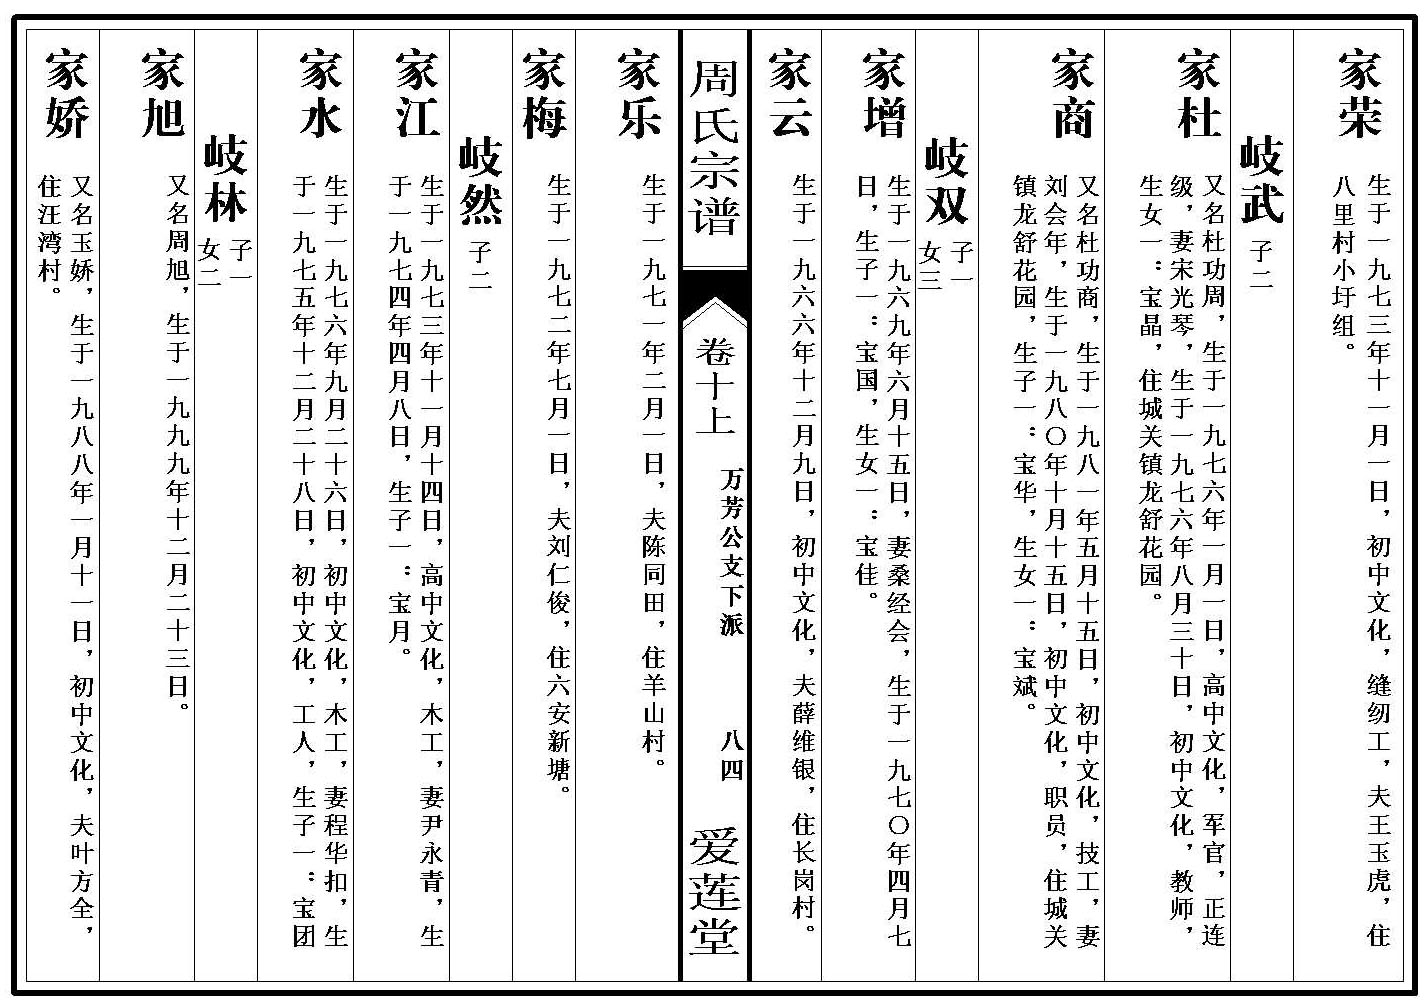 家荣
生于一九七三年十一月一日，初中文化，缝纫工，夫王玉虎，住
八里村小圩组。
岐武
子二
家杜
又名杜功周，生于一九七六年一月一日，高中文化，军官，正连
级，妻宋光琴，生于一九七六年八月三十日，初中文化，教师，
生女一：宝晶，住城关镇龙舒花园。
家商
又名杜功商，生于一九八一年五月十五日，初中文化，技工，妻
刘会年，生于一九八〇年十月十五日，初中文化，职员，住城关
镇龙舒花园，生子一：宝华，生女一：宝斌。
岐双
子一
女三
家增
生于一九六九年六月十五日，妻桑经会，生于一九七〇年四月七
日，生子一：宝国，生女一：宝佳。
家云
生于一九六六年十二月九日，初中文化，夫薛维银，住长岗村。
周氏宗谱
卷十上
万芳公支下派
八四
爱莲堂
家乐
生于一九七一年二月一日，夫陈同田，住羊山村。
家梅
生于一九七二年七月一日，夫刘仁俊，住六安新塘。
岐然
子二
家江
生于一九七三年十一月十四日，高中文化，木工，妻尹永青，生
于一九七四年四月八日，生子一：宝月。
家水
生于一九七六年九月二十六日，初中文化，木工，妻程华扣，生
于一九七五年十二月二十八日，初中文化，工人，生子一：宝团
岐林
子一
女二
家旭
又名周旭，生于一九九九年十二月二十三日。
家娇
又名玉娇，生于一九八八年一月十一日，初中文化，夫叶方全，
住汪湾村。